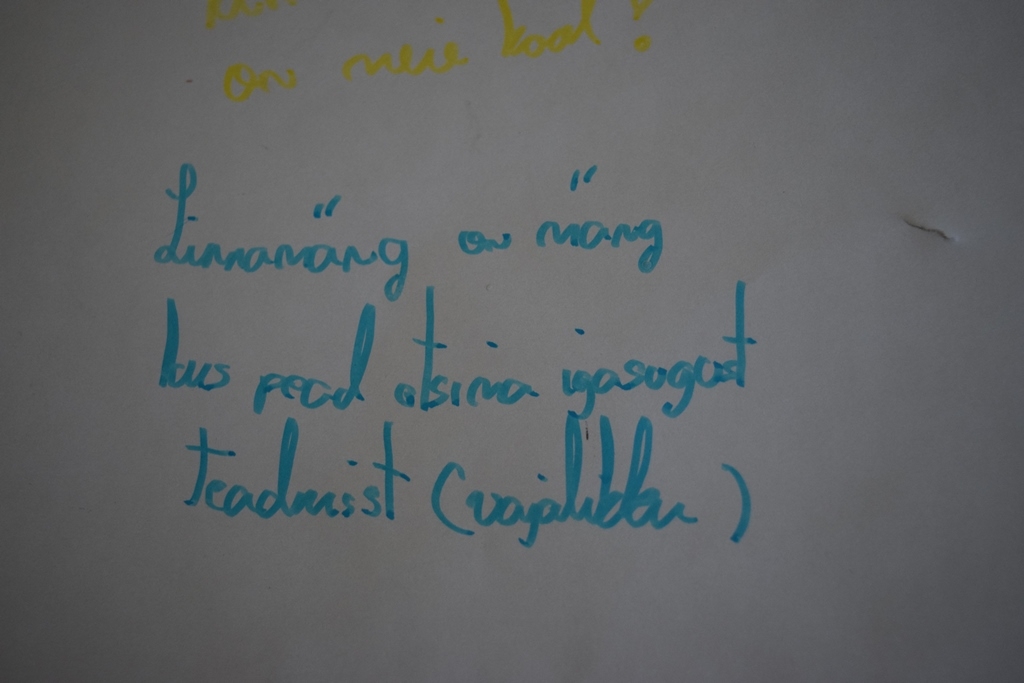 on meie kood!
Linnamäng on mäng
kus pead otsima igasugust
teadmist (vajalikku)